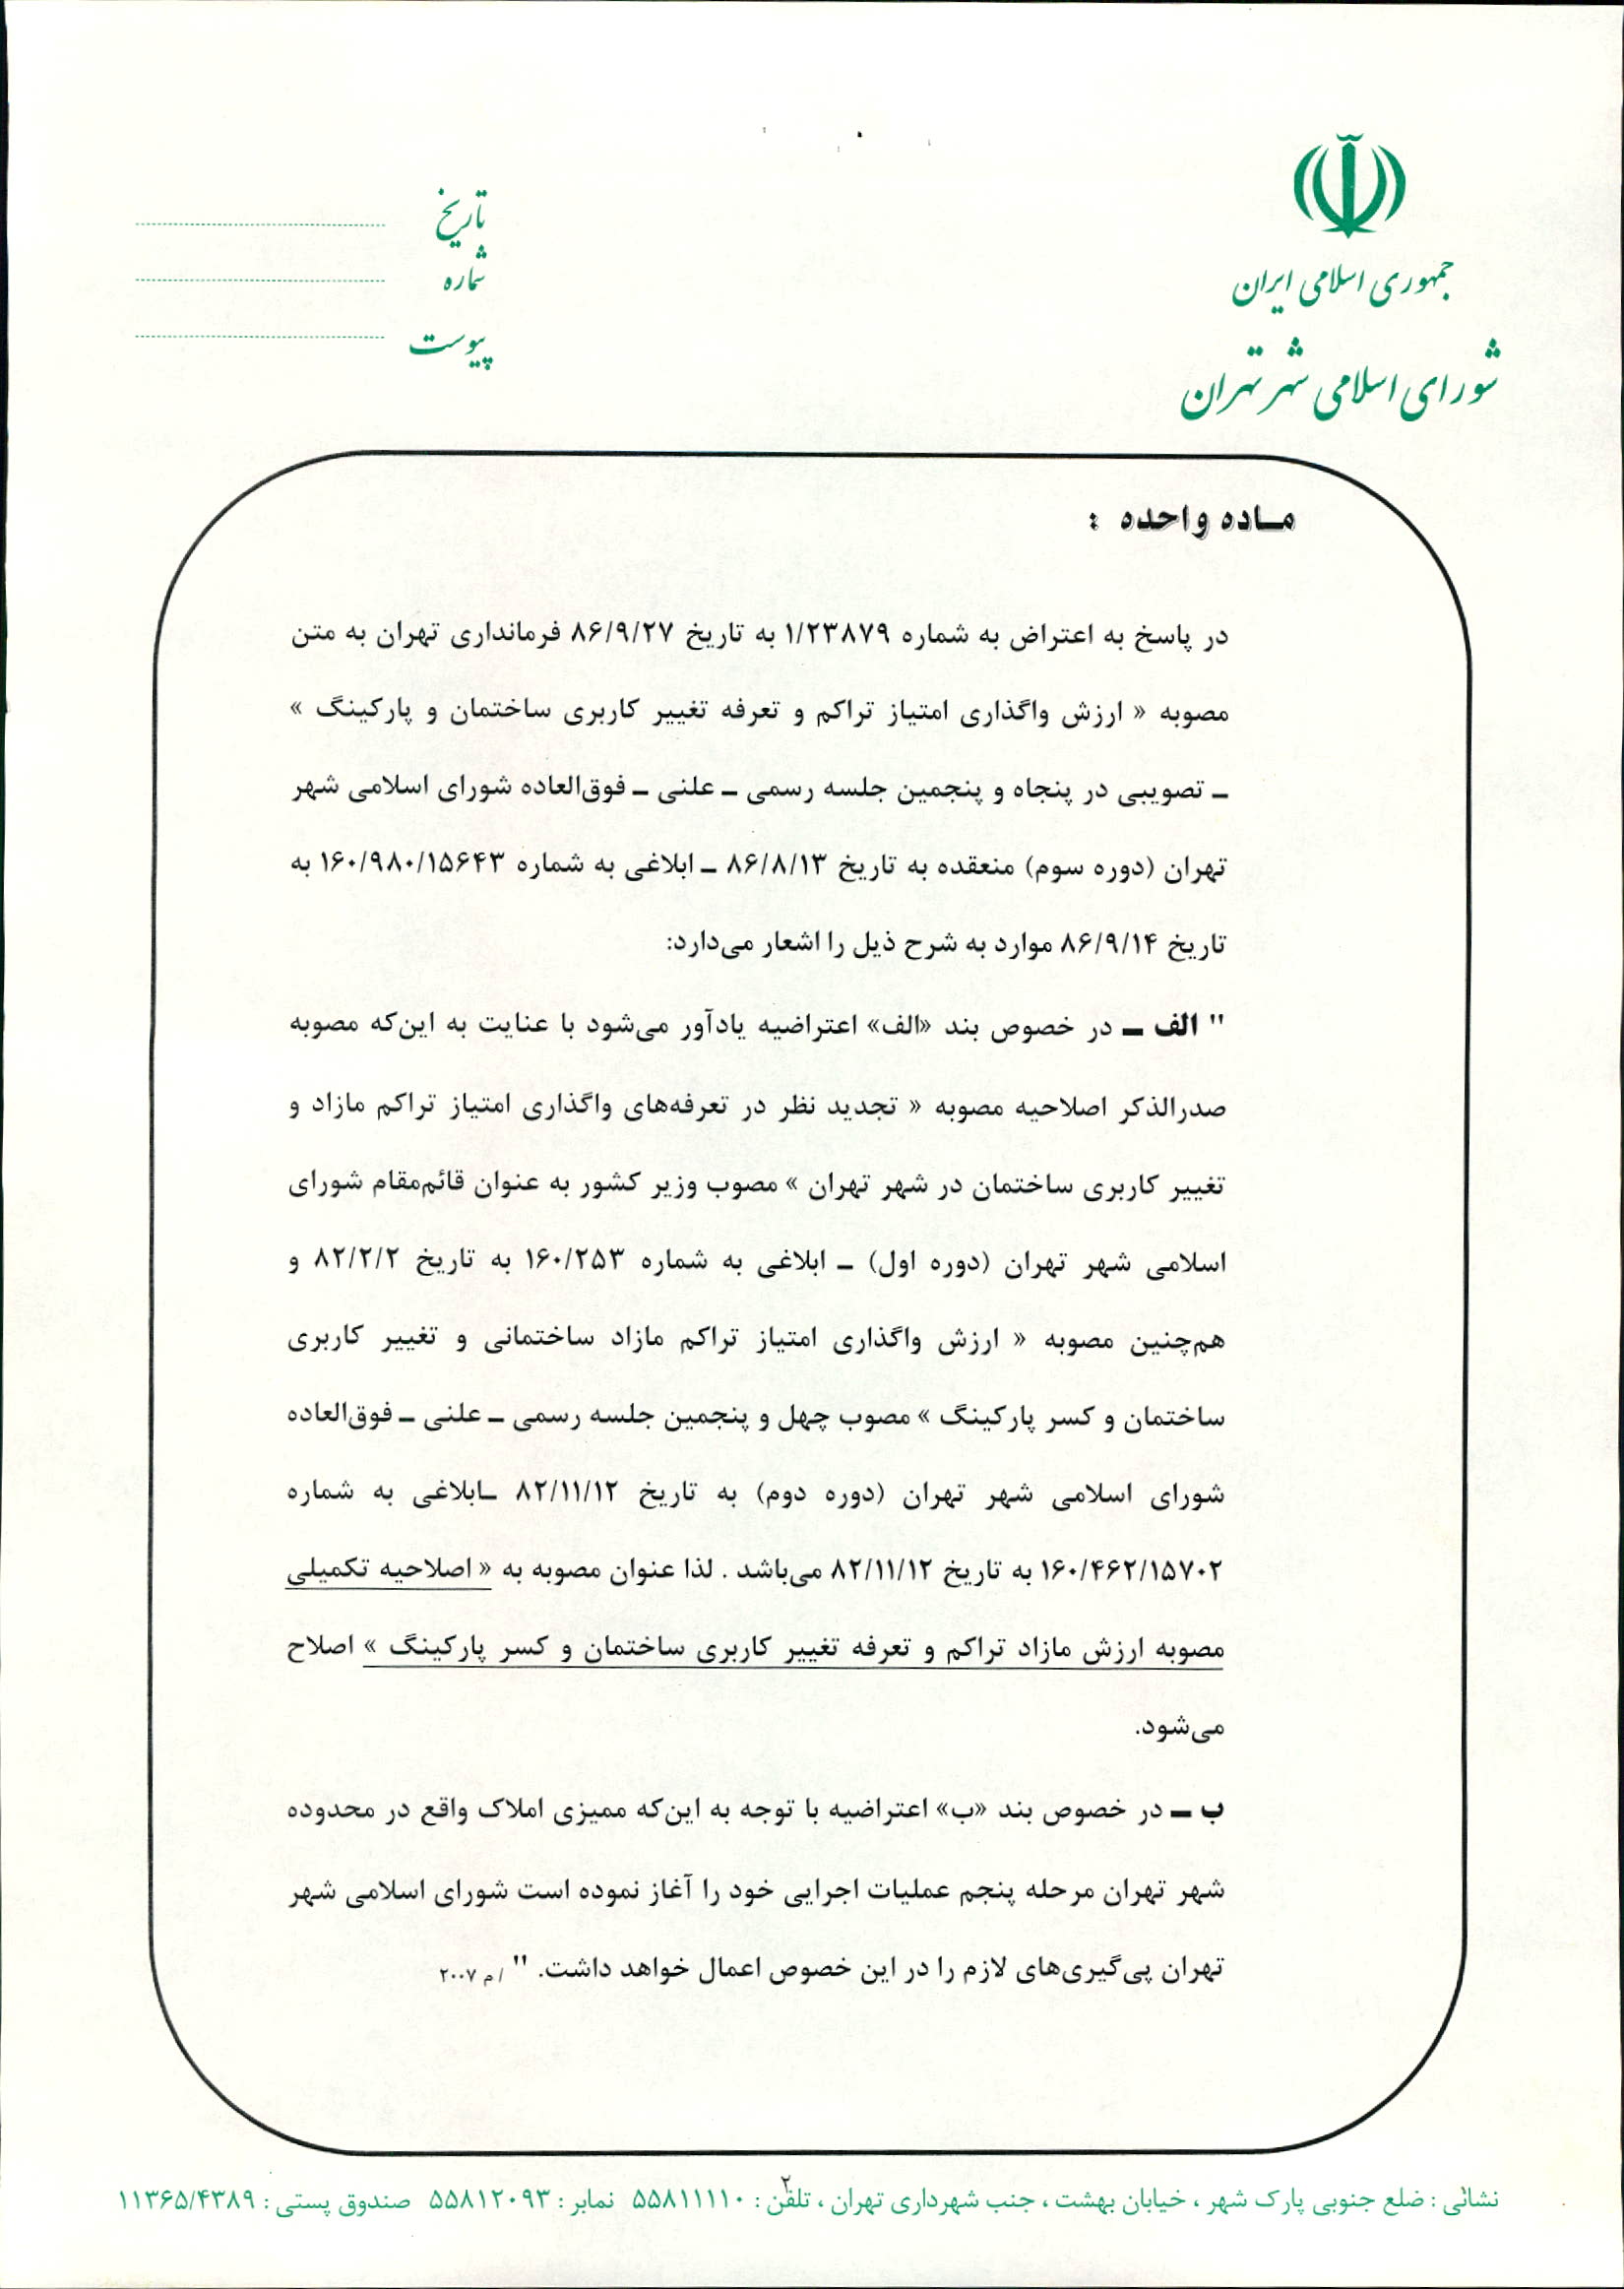 جمهوری اسلامی ایران
شورای اسلامی شهر تهران
تاریخ
شماره
پیوست
مـاده واحده :
در پاسخ به اعتراض به شماره ۱/۲۳۸۷۹ به تاریخ ۸۶/۹/۲۷ فرمانداری تهران به متن
مصوبه « ارزش واگذاری امتیاز تراکم و تعرفه تغییر کاربری ساختمان و پارکینگ »
ـ تصویبی در پنجاه و پنجمین جلسه رسمی ـ علنی ـ فوق‌العاده شورای اسلامی شهر
تهران (دوره سوم) منعقده به تاریخ ۸۶/۸/۱۳ ـ ابلاغی به شماره ۱۶۰/۹۸۰/۱۵۶۴۳ به
تاریخ ۸۶/۹/۱۴ موارد به شرح ذیل را اشعار می‌دارد:
" الف ـ در خصوص بند «الف» اعتراضیه یادآور می‌شود با عنایت به این‌که مصوبه
صدرالذکر اصلاحیه مصوبه « تجدید نظر در تعرفه‌های واگذاری امتیاز تراکم مازاد و
تغییر کاربری ساختمان در شهر تهران » مصوب وزیر کشور به عنوان قائم‌مقام شورای
اسلامی شهر تهران (دوره اول) ـ ابلاغی به شماره ۱۶۰/۲۵۳ به تاریخ ۸۲/۲/۲ و
هم‌چنین مصوبه « ارزش واگذاری امتیاز تراکم مازاد ساختمانی و تغییر کاربری
ساختمان و کسر پارکینگ » مصوب چهل و پنجمین جلسه رسمی ـ علنی ـ فوق‌العاده
شورای اسلامی شهر تهران (دوره دوم) به تاریخ ۸۲/۱۱/۱۲ ـابلاغی به شماره
۱۶۰/۴۶۲/۱۵۷۰۲ به تاریخ ۸۲/۱۱/۱۲ می‌باشد . لذا عنوان مصوبه به « اصلاحیه تکمیلی
مصوبه ارزش مازاد تراکم و تعرفه تغییر کاربری ساختمان و کسر پارکینگ » اصلاح
می‌شود.
ب ـ در خصوص بند «ب» اعتراضیه با توجه به این‌که ممیزی املاک واقع در محدوده
شهر تهران مرحله پنجم عملیات اجرایی خود را آغاز نموده است شورای اسلامی شهر
تهران پی‌گیری‌های لازم را در این خصوص اعمال خواهد داشت. " /م ۲۰۰۷
۲
نشانی : ضلع جنوبی پارک شهر ، خیابان بهشت ، جنب شهرداری تهران ، تلفن : ۵۵۸۱۱۱۱۰ نمابر : ۵۵۸۱۲۰۹۳ صندوق پستی : ۱۱۳۶۵/۴۳۸۹